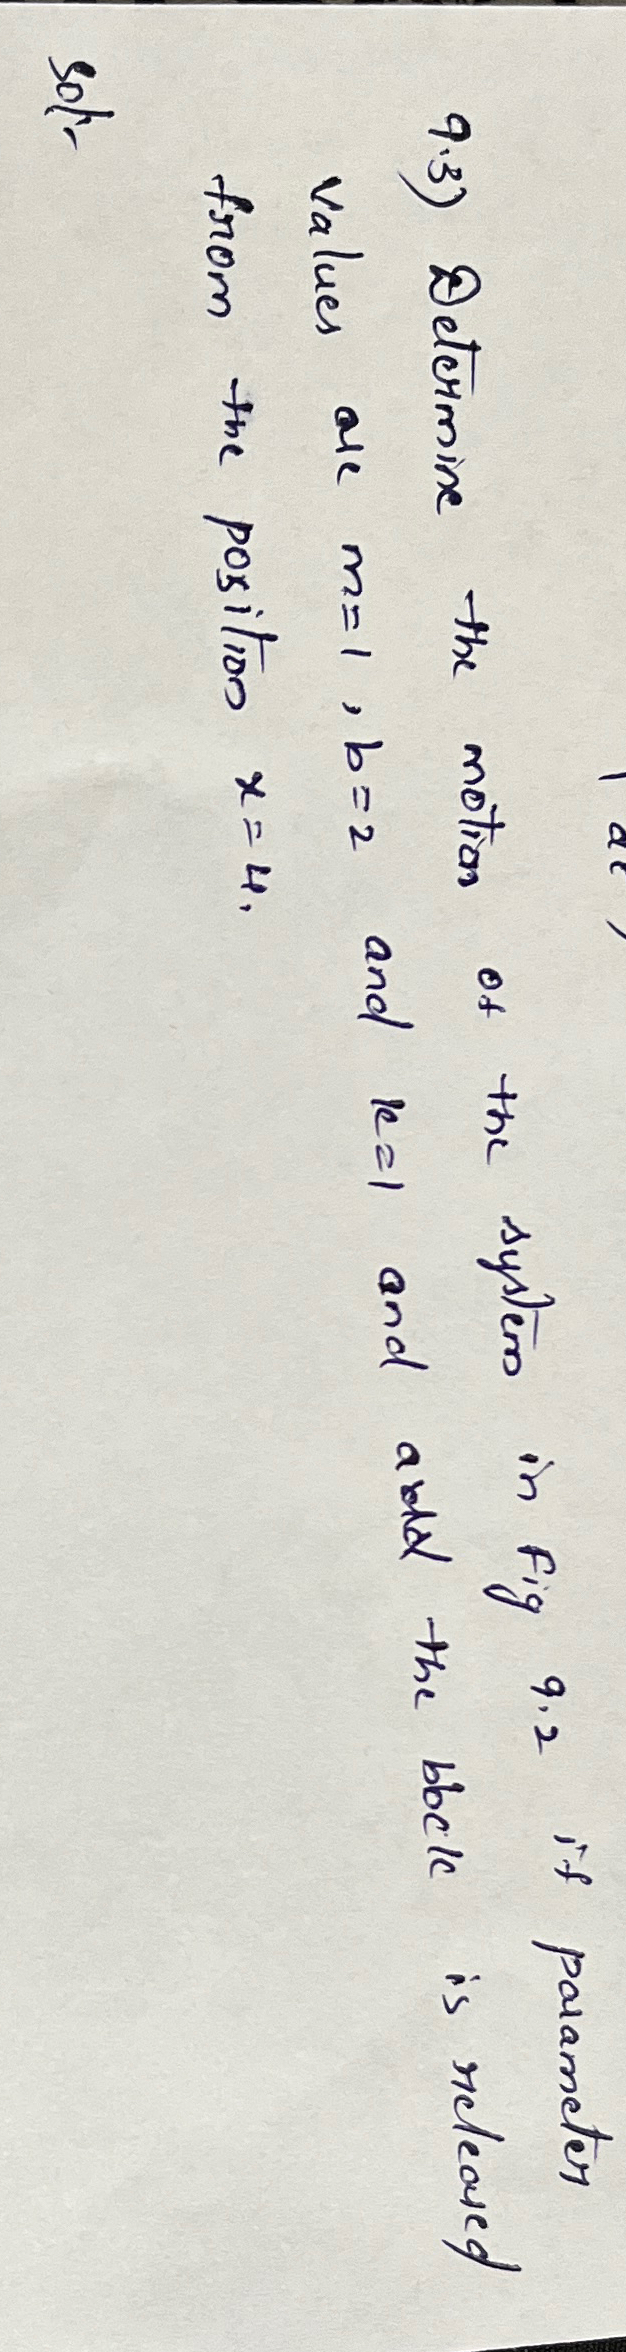 9.3) Determine the motion of the system in Fig 9.2 if parameter
values are m=1, b=2 and k=1 and and the block is released
from the position x=4.
Sol:-